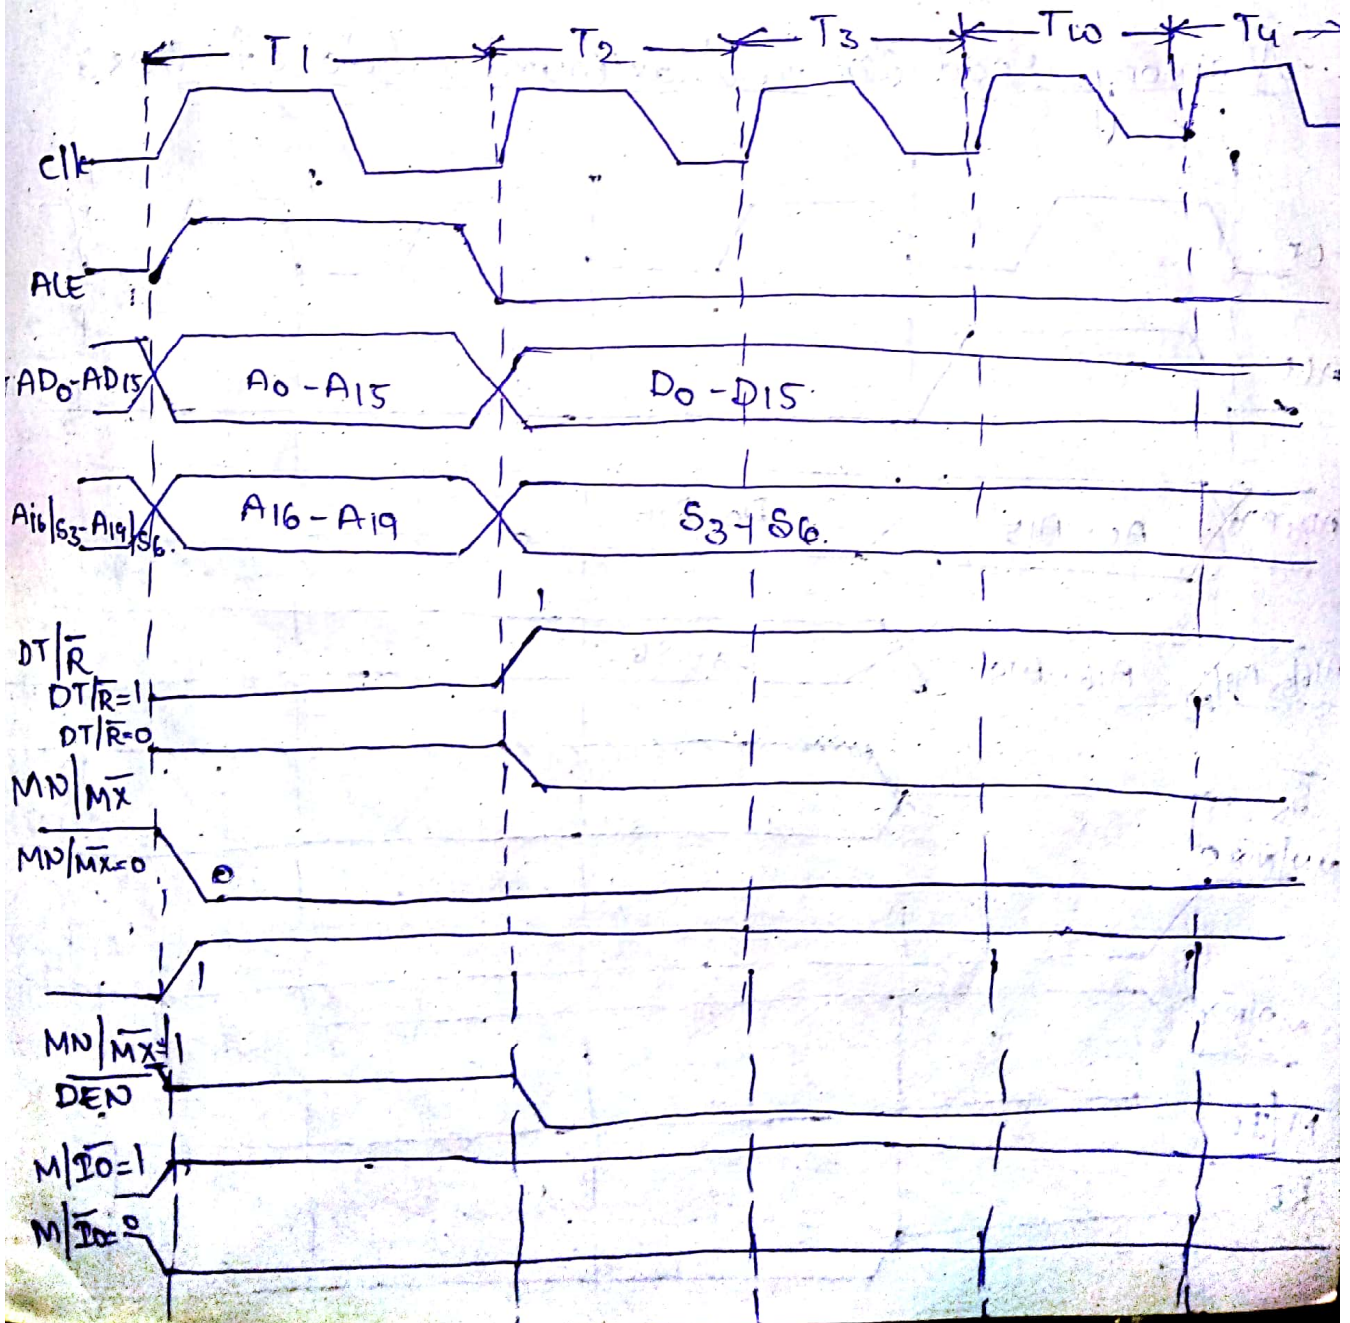 T1 T2 T3 Tw T4
Clk
ALE
AD0-AD15 A0-A15 D0-D15
A16/S3-A19/S6. A16-A19 S3-S6.
1
DT/R̅
DT/R̅=1
DT/R̅=0
MN/M̅X̅
MN/M̅X̅=0
0
1
MN/M̅X̅=1
D̅E̅N̅
M/I̅O̅=1
M/I̅O̅=0